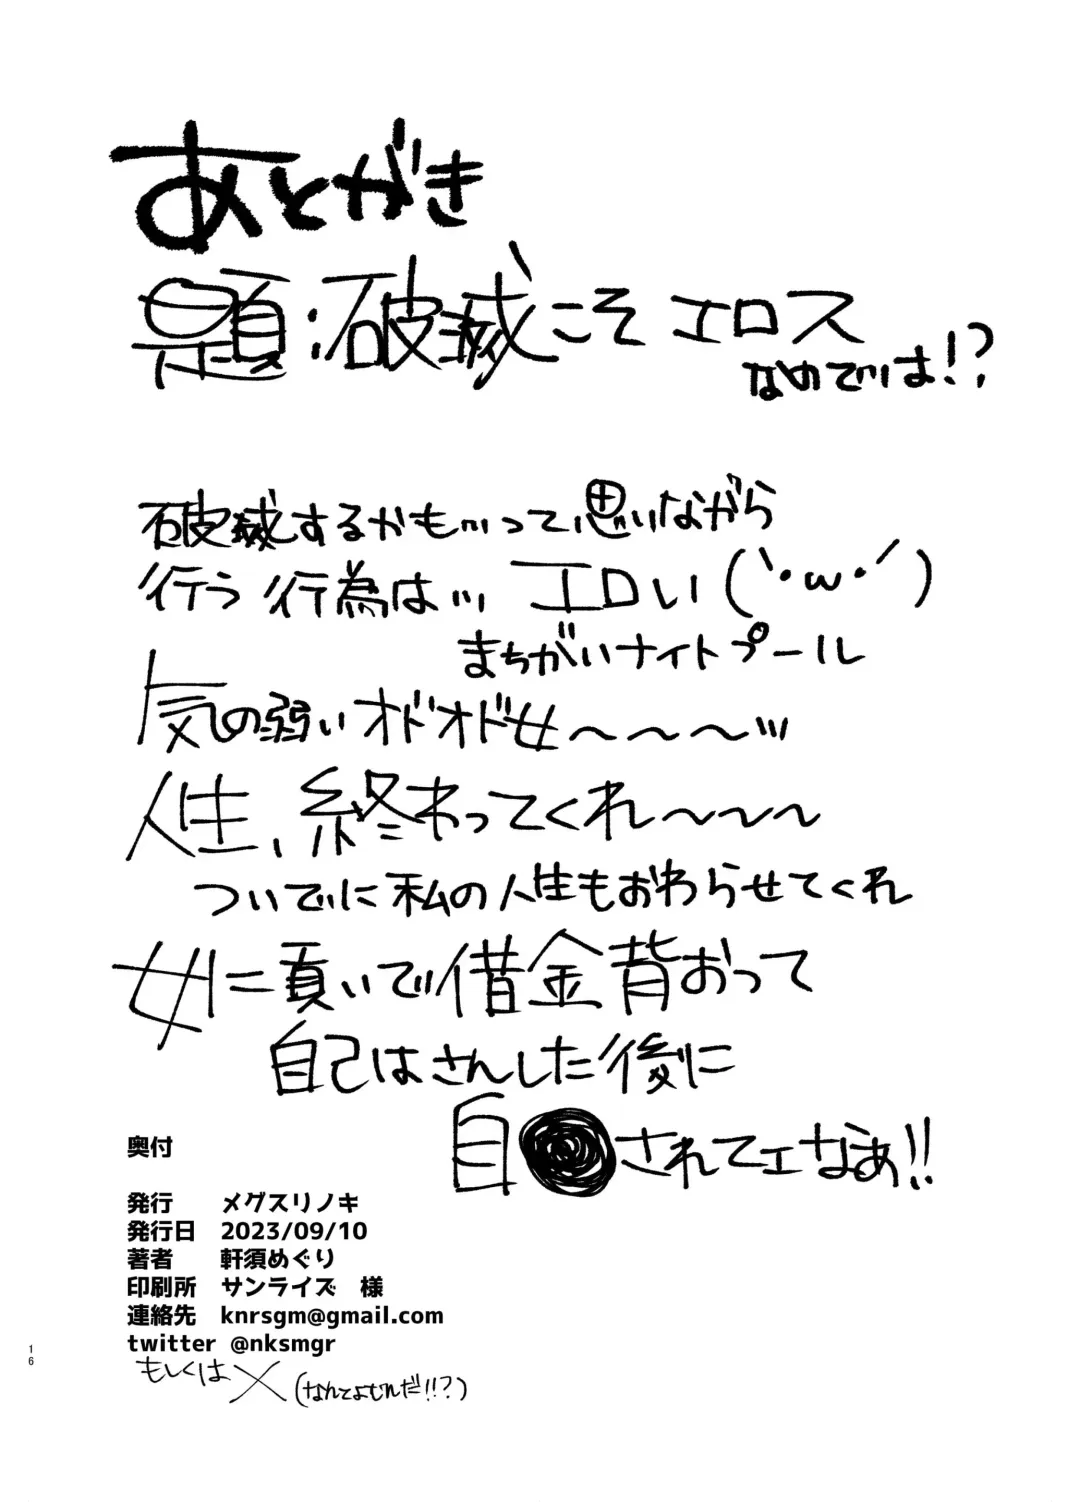 あとがき
題:破滅こそエロス
なのでは!?
破滅するかもしれないって思いながら
行う行為は… エロい(｀・ω・´)
まちがいナイトプール
気の弱いオドオド女〜〜〜…
人生、終わってくれ〜〜〜
ついでに私の人生もおわらせてくれ
女に貢いで借金背おって
自己はさんした後に
自●されてェなぁ!!
奥付
発行 メグスリノキ
発行日 2023/09/10
著者 軒須めぐり
印刷所 サンライズ 様
連絡先 knrsgm@gmail.com
twitter @nksmgr
もしくはX(なんてよむんだ!!?)
16